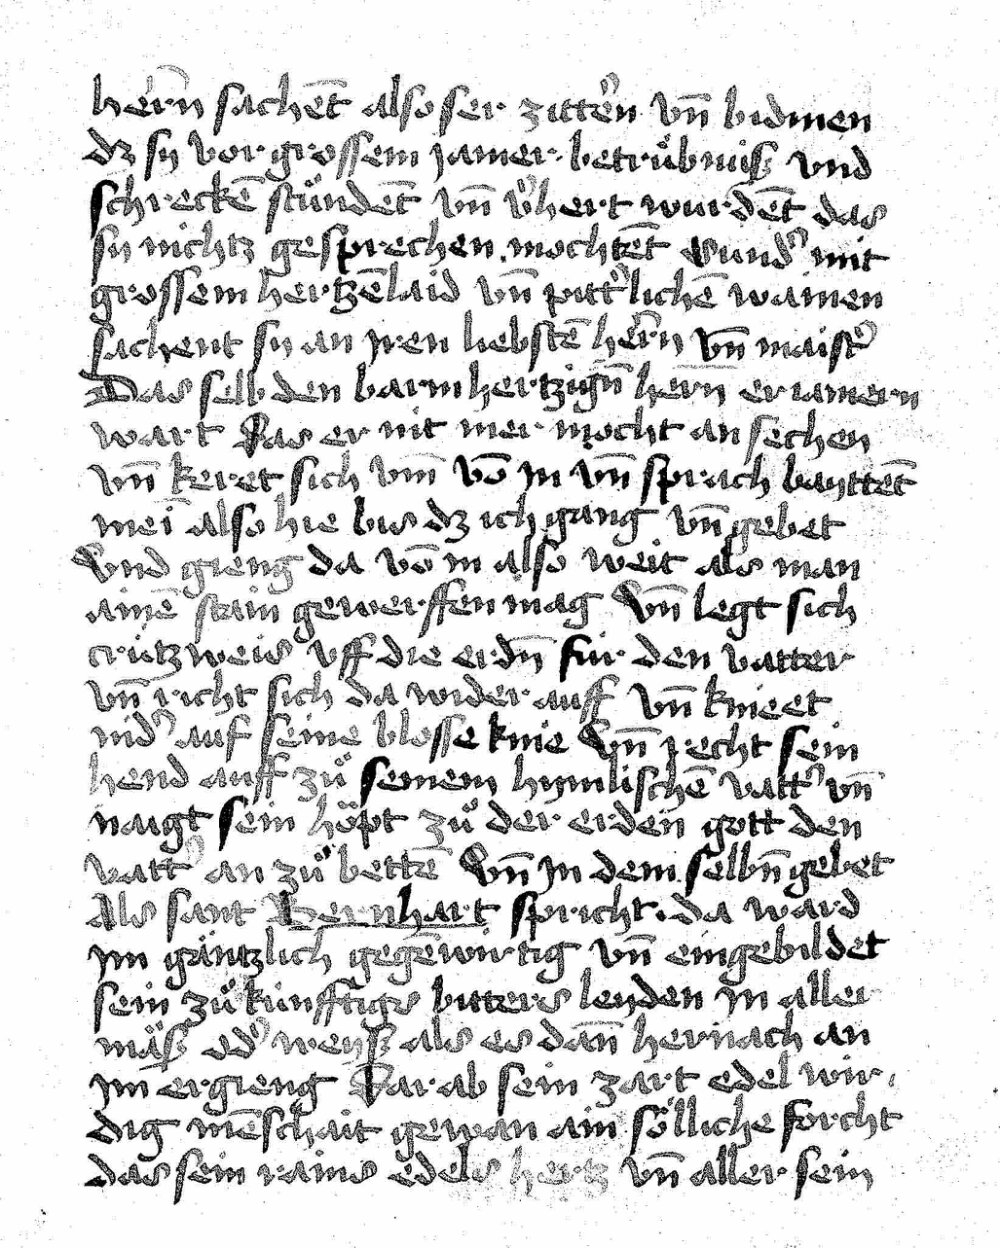 herñ sachent̄ also ser zitterñ vn̄ bidmen
dz sy vor grossem jamer betrübnuiß vnd
schreckē stündent̄ vn̄ v͛hert wurdent̄ das
sy nichtz gesprechen mochtent̄ Wund͛ mit
grossem hertzēlaid vn̄ pitt͛lichē wainen
sachent sy an jren liebstē herñ vn̄ maist͛
Das selb den barmhertzigñ herñ eriamern
wart Das er nit mer mocht an sechen
vn̄ keret sich vm̄ vō jn vn̄ sprach bayttent̄
mei also hie bis dz ich gang vn̄ gebet
Vnd gieng da vō in also weit als man
ainē stain gewerffen mag Vn̄ legt sich
critzweis vff die erdn̄ für den vatter
vn̄ richt sich da wider auff vn̄ knieet
nid͛ auf seine blosse knie Vn̄ recht sein
hend auff zů seinem hymlischē vatt͛ vn̄
naigt sein höpt zů der erden gott den
vatt͛ an zů bettē Vn̄ jn dem selbn̄ gebet
Als sant Bernhart spricht. da ward
jm gäntzlich gegēwirtig vn̄ eingebildet
sein zůkünfftigs bitters leyden jn aller
mäß od͛ weyß als es dan̄ hernach an
jm ergieng Darab sein zart edel wir
dig mēschait gewan ain sölliche forcht
das sein rains edels hertz vn̄ aller sein